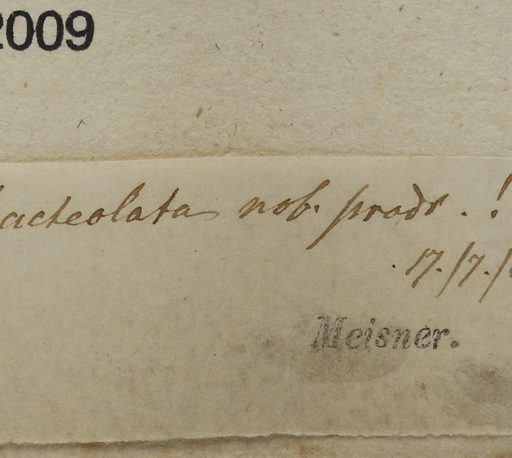 2009
bracteolata nob. prodr. !
17./7./
Meisner.